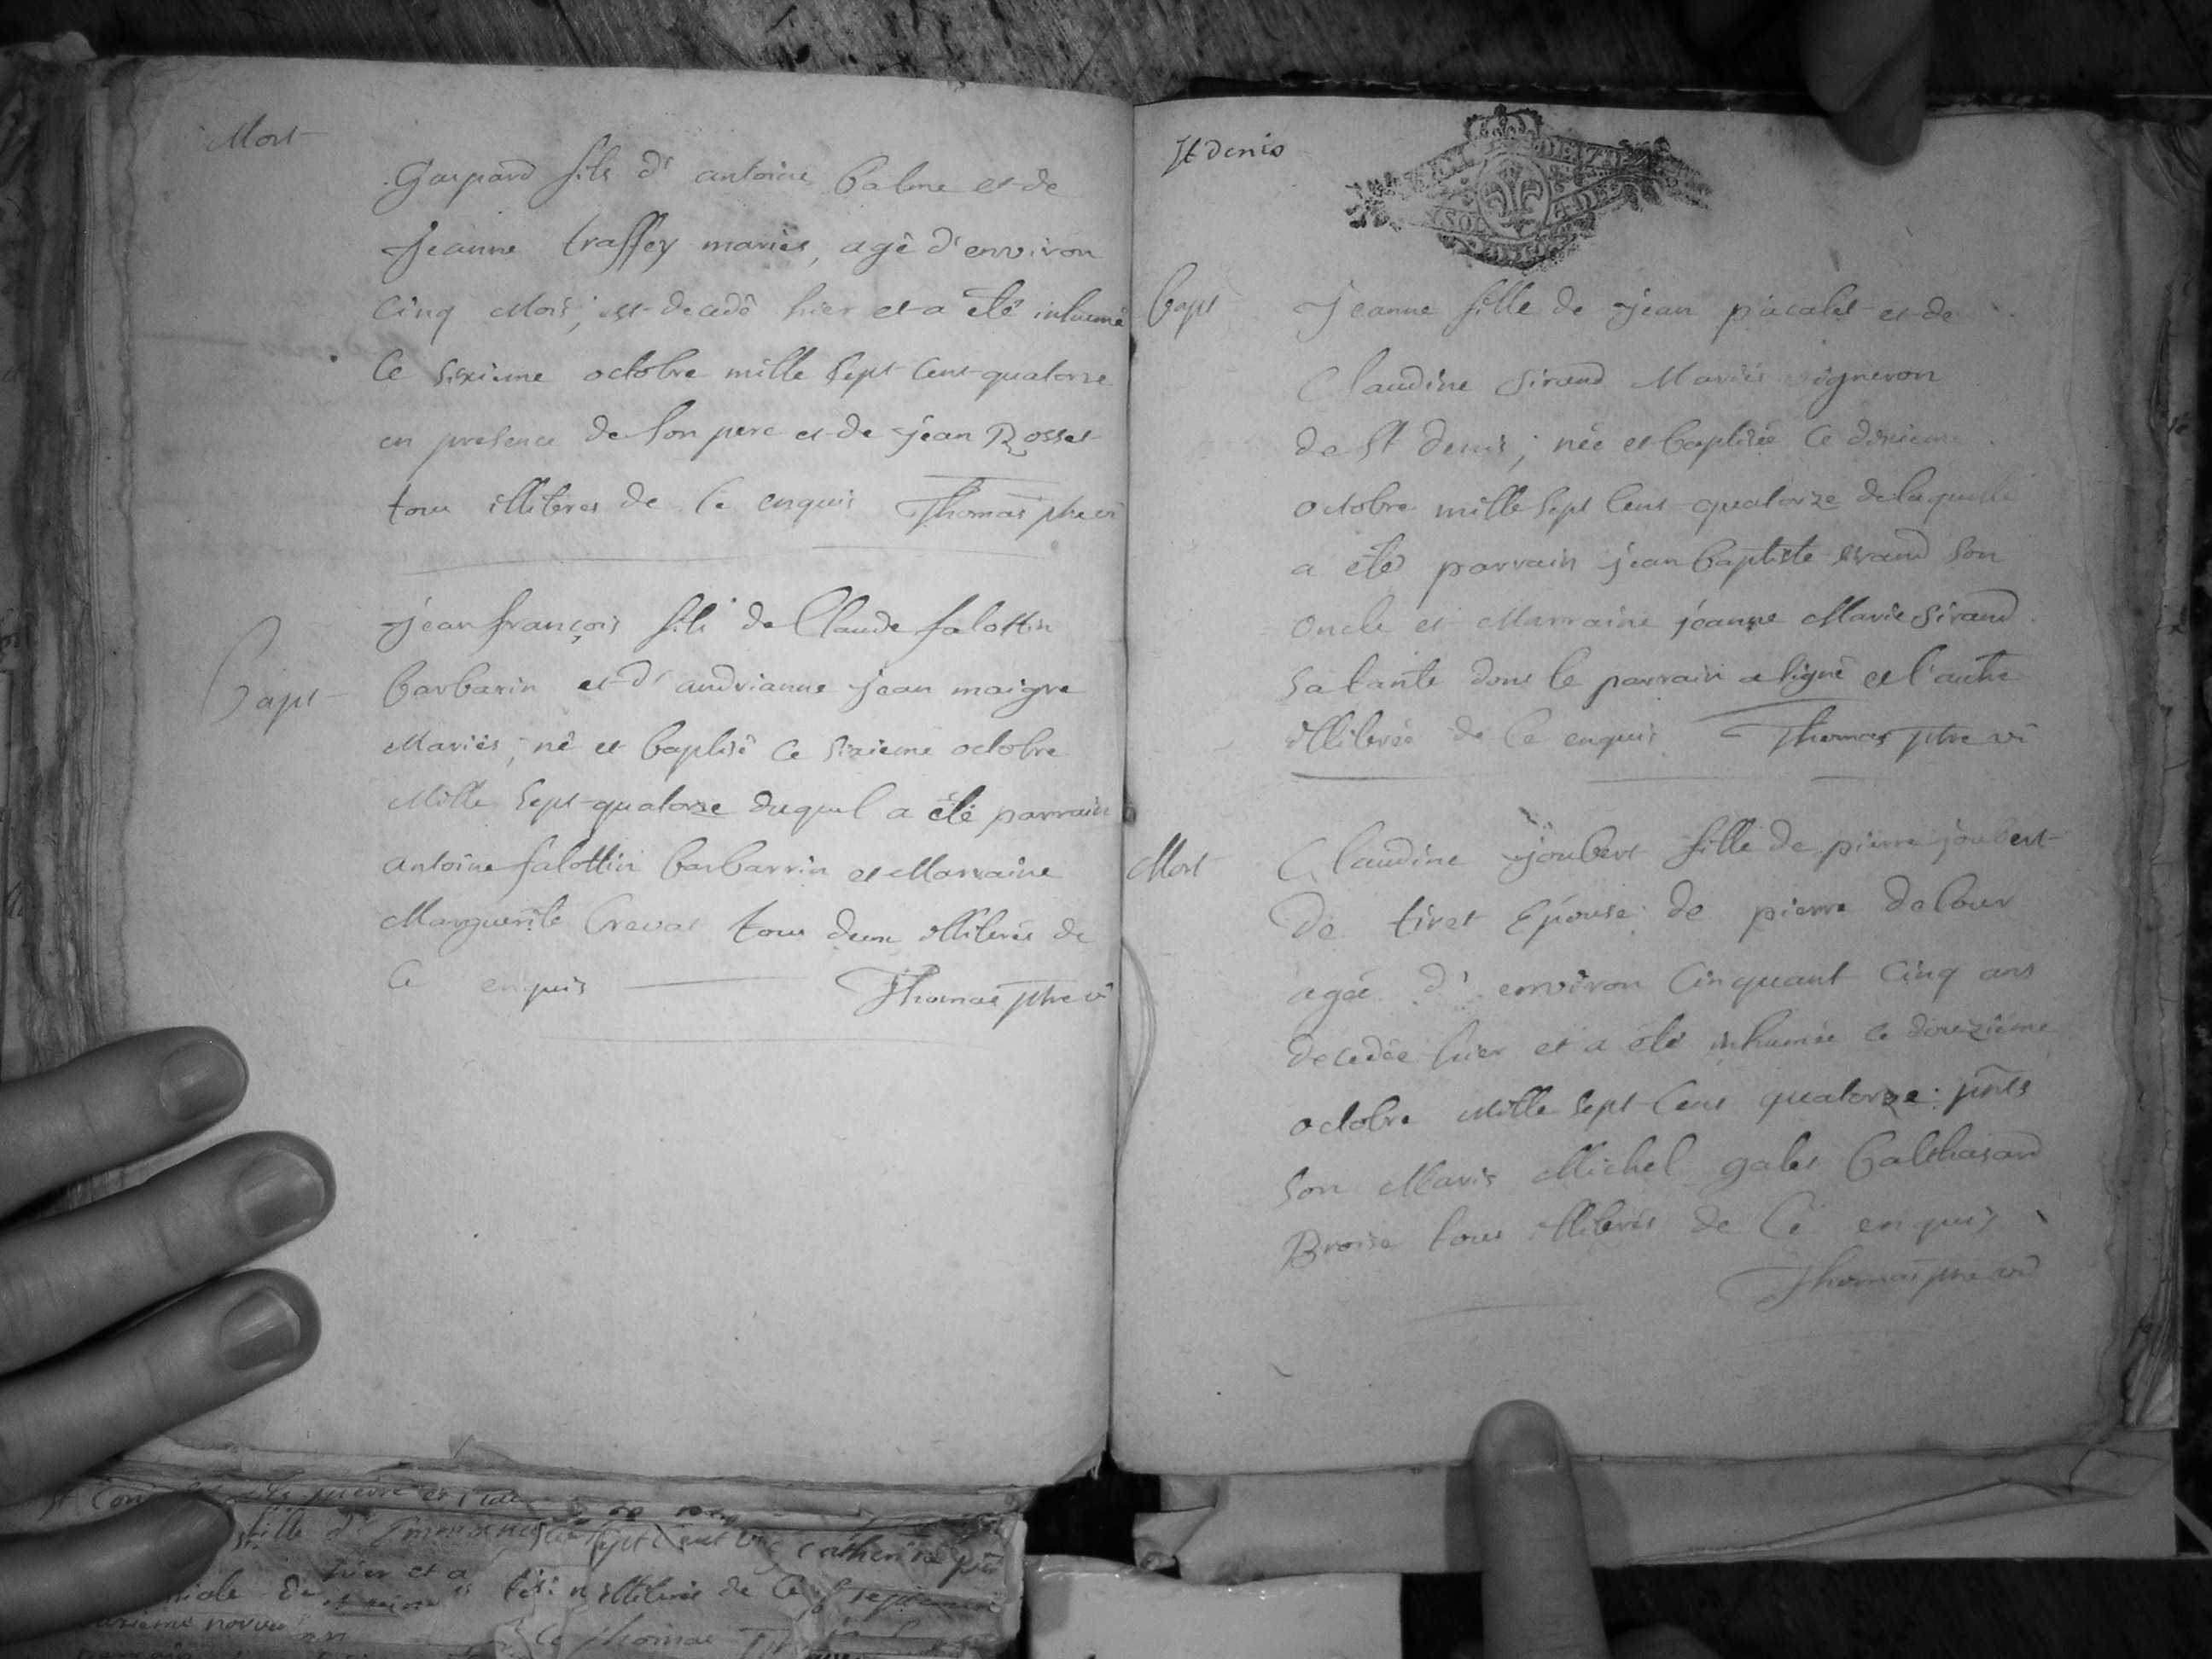 Mort
Gaspard fils d' antoine balme et de
Jeanne traffey mariés, agé d'environ
cinq mois, est decedé hier et a été inhumé
ce sixieme octobre mille sept cent quatorze
en presence de son pere et de jean Rosset
tous illiteres de ce enquis Thomas ptre vi
Bapt
jean françois fils de Claude falottin
barbarin et d' andrianne jean maigre
Mariés, né et baptisé ce sixieme octobre
Mille sept quatorze duquel a été parrain
antoine falottin barbarrin et Marraine
Marguerite Crevat tous deux illiterés de
ce enquis Thomas ptre vi
St denis
Bapt
Jeanne fille de jean pacalet et de
Claudine sirand Mariés vigneron
de St denis, née et baptisée ce dixieme
octobre mille sept cent quatorze de laquelle
a été parrain jean baptiste sirand son
oncle et Marraine jeanne Marie sirand
sa tante dont le parrain a signé et l'autre
illiterée de ce enquis Thomas ptre vi
Mort
Claudine joubert fille de pierre joubert
de tiret Epouse de pierre delour
agée d' environ cinquant cinq ans
decedée hier et a été inhumée ce douzième
octobre Mille sept cent quatorze pnts
son Maris Michel galet balthasard
Broise tous illiterés de ce enquis
Thomas ptre vi
fille d'
sept cent catherine
hier et a
illiterés de ce
ce thomas